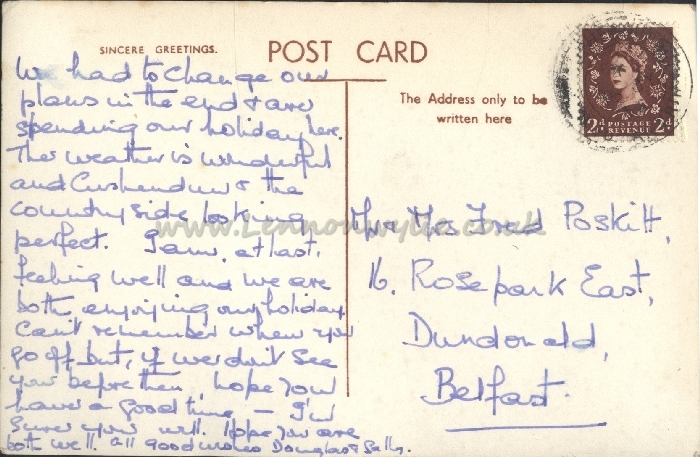 SINCERE GREETINGS.
POST CARD
We had to change our
plans in the end & are
spending our holiday here.
The weather is wonderful
and Cushendun & the
countryside looking
perfect. I am, at last,
feeling well and we are
both enjoying our holiday
Can't remember when you
go off but, if we don't see
you before then hope you
have a good time – I'm
sure you will. Hope you are
both well. All good wishes Douglas & Sally.
The Address only to be
written here
2d POSTAGE REVENUE 2d
Mr & Mrs Fred Poskitt,
16. Rosepark East,
Dundonald,
Belfast.
www.Lennonwylie.co.uk